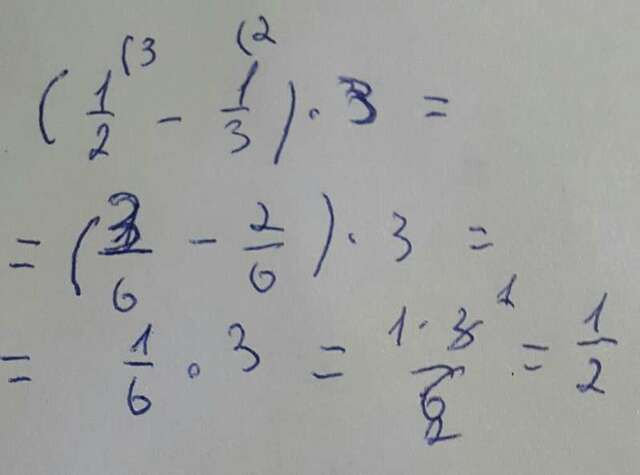 (1/2^(3 - 1/3^(2) · 3 =
= (3/6 - 2/6) · 3 =
= 1/6 · 3 = 1·3^1/6_2 = 1/2